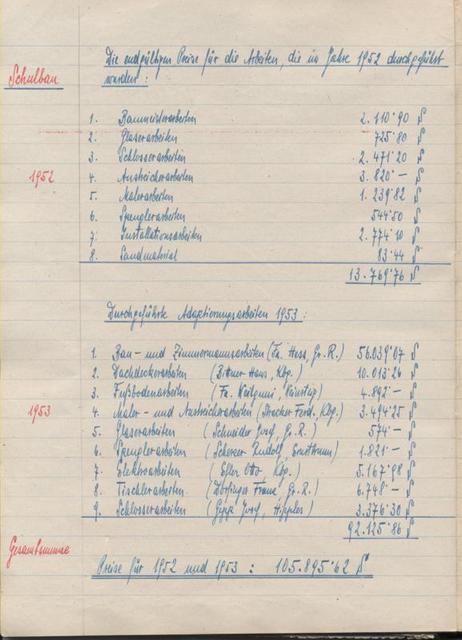 Die endgültigen Preise für die Arbeiten, die im Jahre 1952 durchgeführt
Schulbau
wurden:
1. Baumeisterarbeiten 2.110˙90 S
2. Glaserarbeiten 725˙80 S
3. Schlosserarbeiten 2.471˙20 S
1952
4. Anstreicherarbeiten 3.820˙— S
5. Malerarbeiten 1.239˙82 S
6. Spenglerarbeiten 544˙50 S
7. Installationsarbeiten 2.774˙10 S
8. Sandmaterial 83˙44 S
13.769˙76 S
Durchgeführte Adaptierungsarbeiten 1953:
1. Bau- und Zimmermannsarbeiten (Fa. Hess, Gr. R.) 56.039˙07 S
2. Dachdeckerarbeiten (Bittner Hans, Kbg.) 10.013˙26 S
3. Fußbodenarbeiten (Fa.) 4.892˙— S
1953
4. Maler- und Anstreicherarbeiten (Ferd. Kbg.) 3.494˙25 S
5. Glaserarbeiten (Schneider Josef, Gr. R.) 574˙— S
6. Spenglerarbeiten (Scherzer Rudolf, Ernstbrunn) 1.821˙— S
7. Elektroarbeiten (Otto Kbg.) 5.167˙98 S
8. Tischlerarbeiten (Franz, Gr. R.) 6.748˙— S
9. Schlosserarbeiten (Josef, Hipples) 3.376˙30 S
92.125˙86 S
Gesamtsumme
Preise für 1952 und 1953: 105.895˙62 S